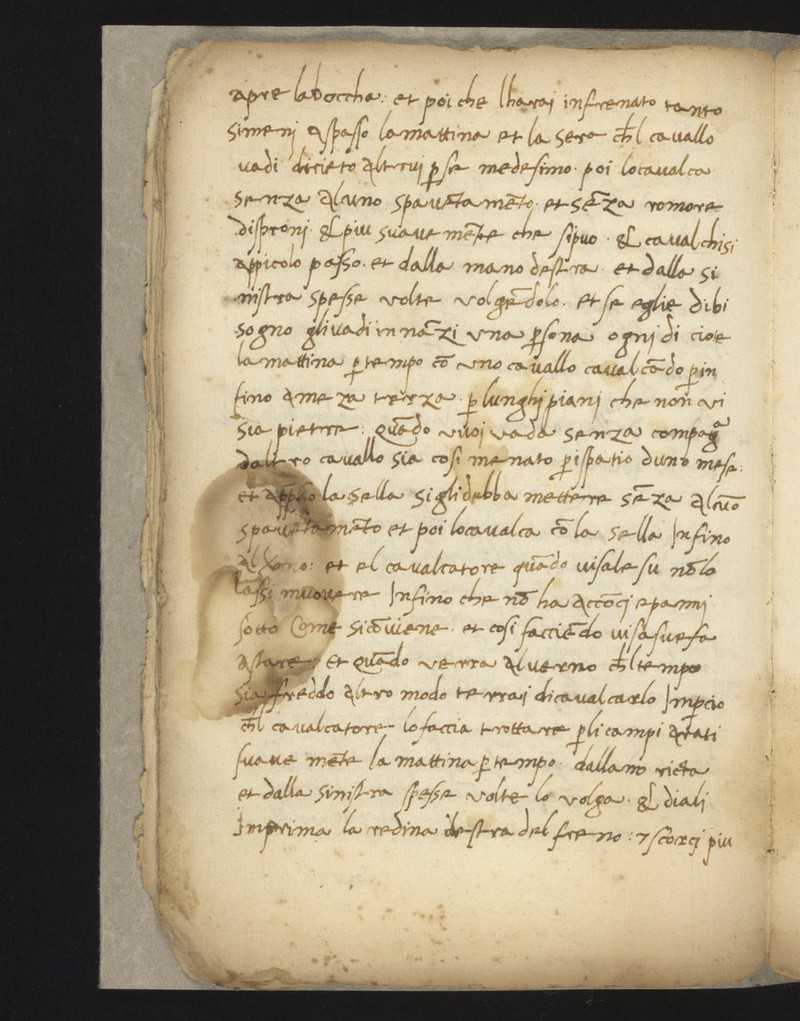 apre laboccha: et poi che lharaj infrenato tanto
simenj aspasso lamattina et la sera ch̄l cavallo
vadi dirieto altruj p̱ se medesimo· poi locavalca
senza alcuno spavētamēto· et sēza romore
disproni· & piu suave mēte che sipuo· & cavalchisi
appicolo passo· et dalla mano destra· et dalla si
nistra spesse volte volgēdolo· et se eglie dibi
sogno glivadi innāzi una p̱sona ognj di cioe
la mattina p̱ tempo cō uno cavallo cavalcādo p̱in
fino ameza terza· p̱ lunghj pianj che non vi
sia pietre: quādo vuoj vada senza compagᵃ
daltro cavallo sia cosi menato p̱ispatio duno mese·
et app̱sso la sella siglidebba mettere sēza alcūo
spavētamēto et poi locavalca cō la sella Infino
al verno: et el cavalcatore quādo visale su nō lo
lassi muovere Infino che nō ha accōcj epannj
sotto Come sicōviene· et cosi facciēdo visasuefa
astare: et quādo verra alverno ch̄l tempo
sia freddo altro modo terraj dicavalcarlo Imp̱cio
ch̄l cavalcatore lo faccia trottare p̱li campi arati
suave mēte la mattina p̱ tempo· dallamo ricta
et dalla sinistra spesse volte lo volga· & diali
Imprima la redina destra del freno: ⁊ scorcj piu